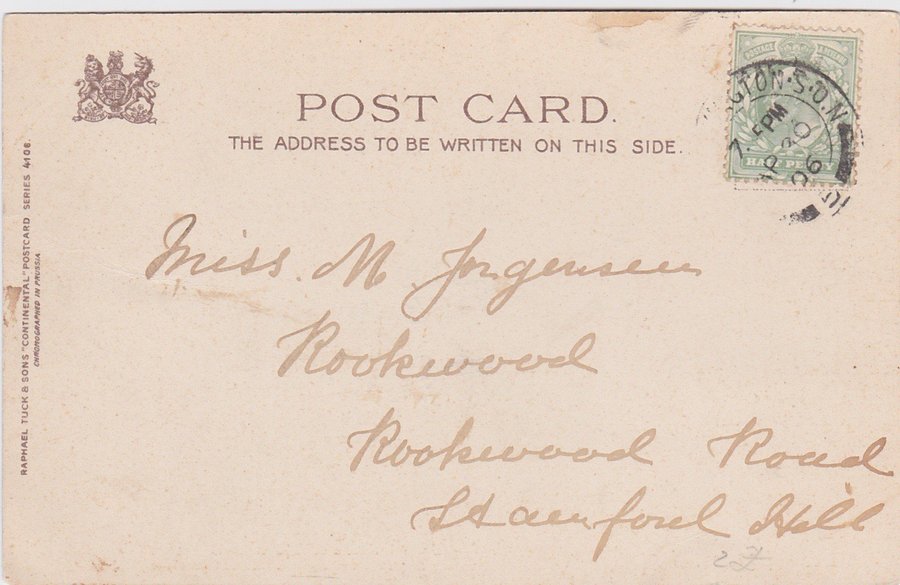 POST CARD.
THE ADDRESS TO BE WRITTEN ON THIS SIDE.
RAPHAEL TUCK & SONS "CONTINENTAL" POSTCARD SERIES 4106.
CHROMOGRAPHED IN PRUSSIA
POSTAGE
HALF PENNY
7. 5 PM
AP 20
06
Miss. M Jorgensen
Rookwood
Rookwood Road
Stamford Hill